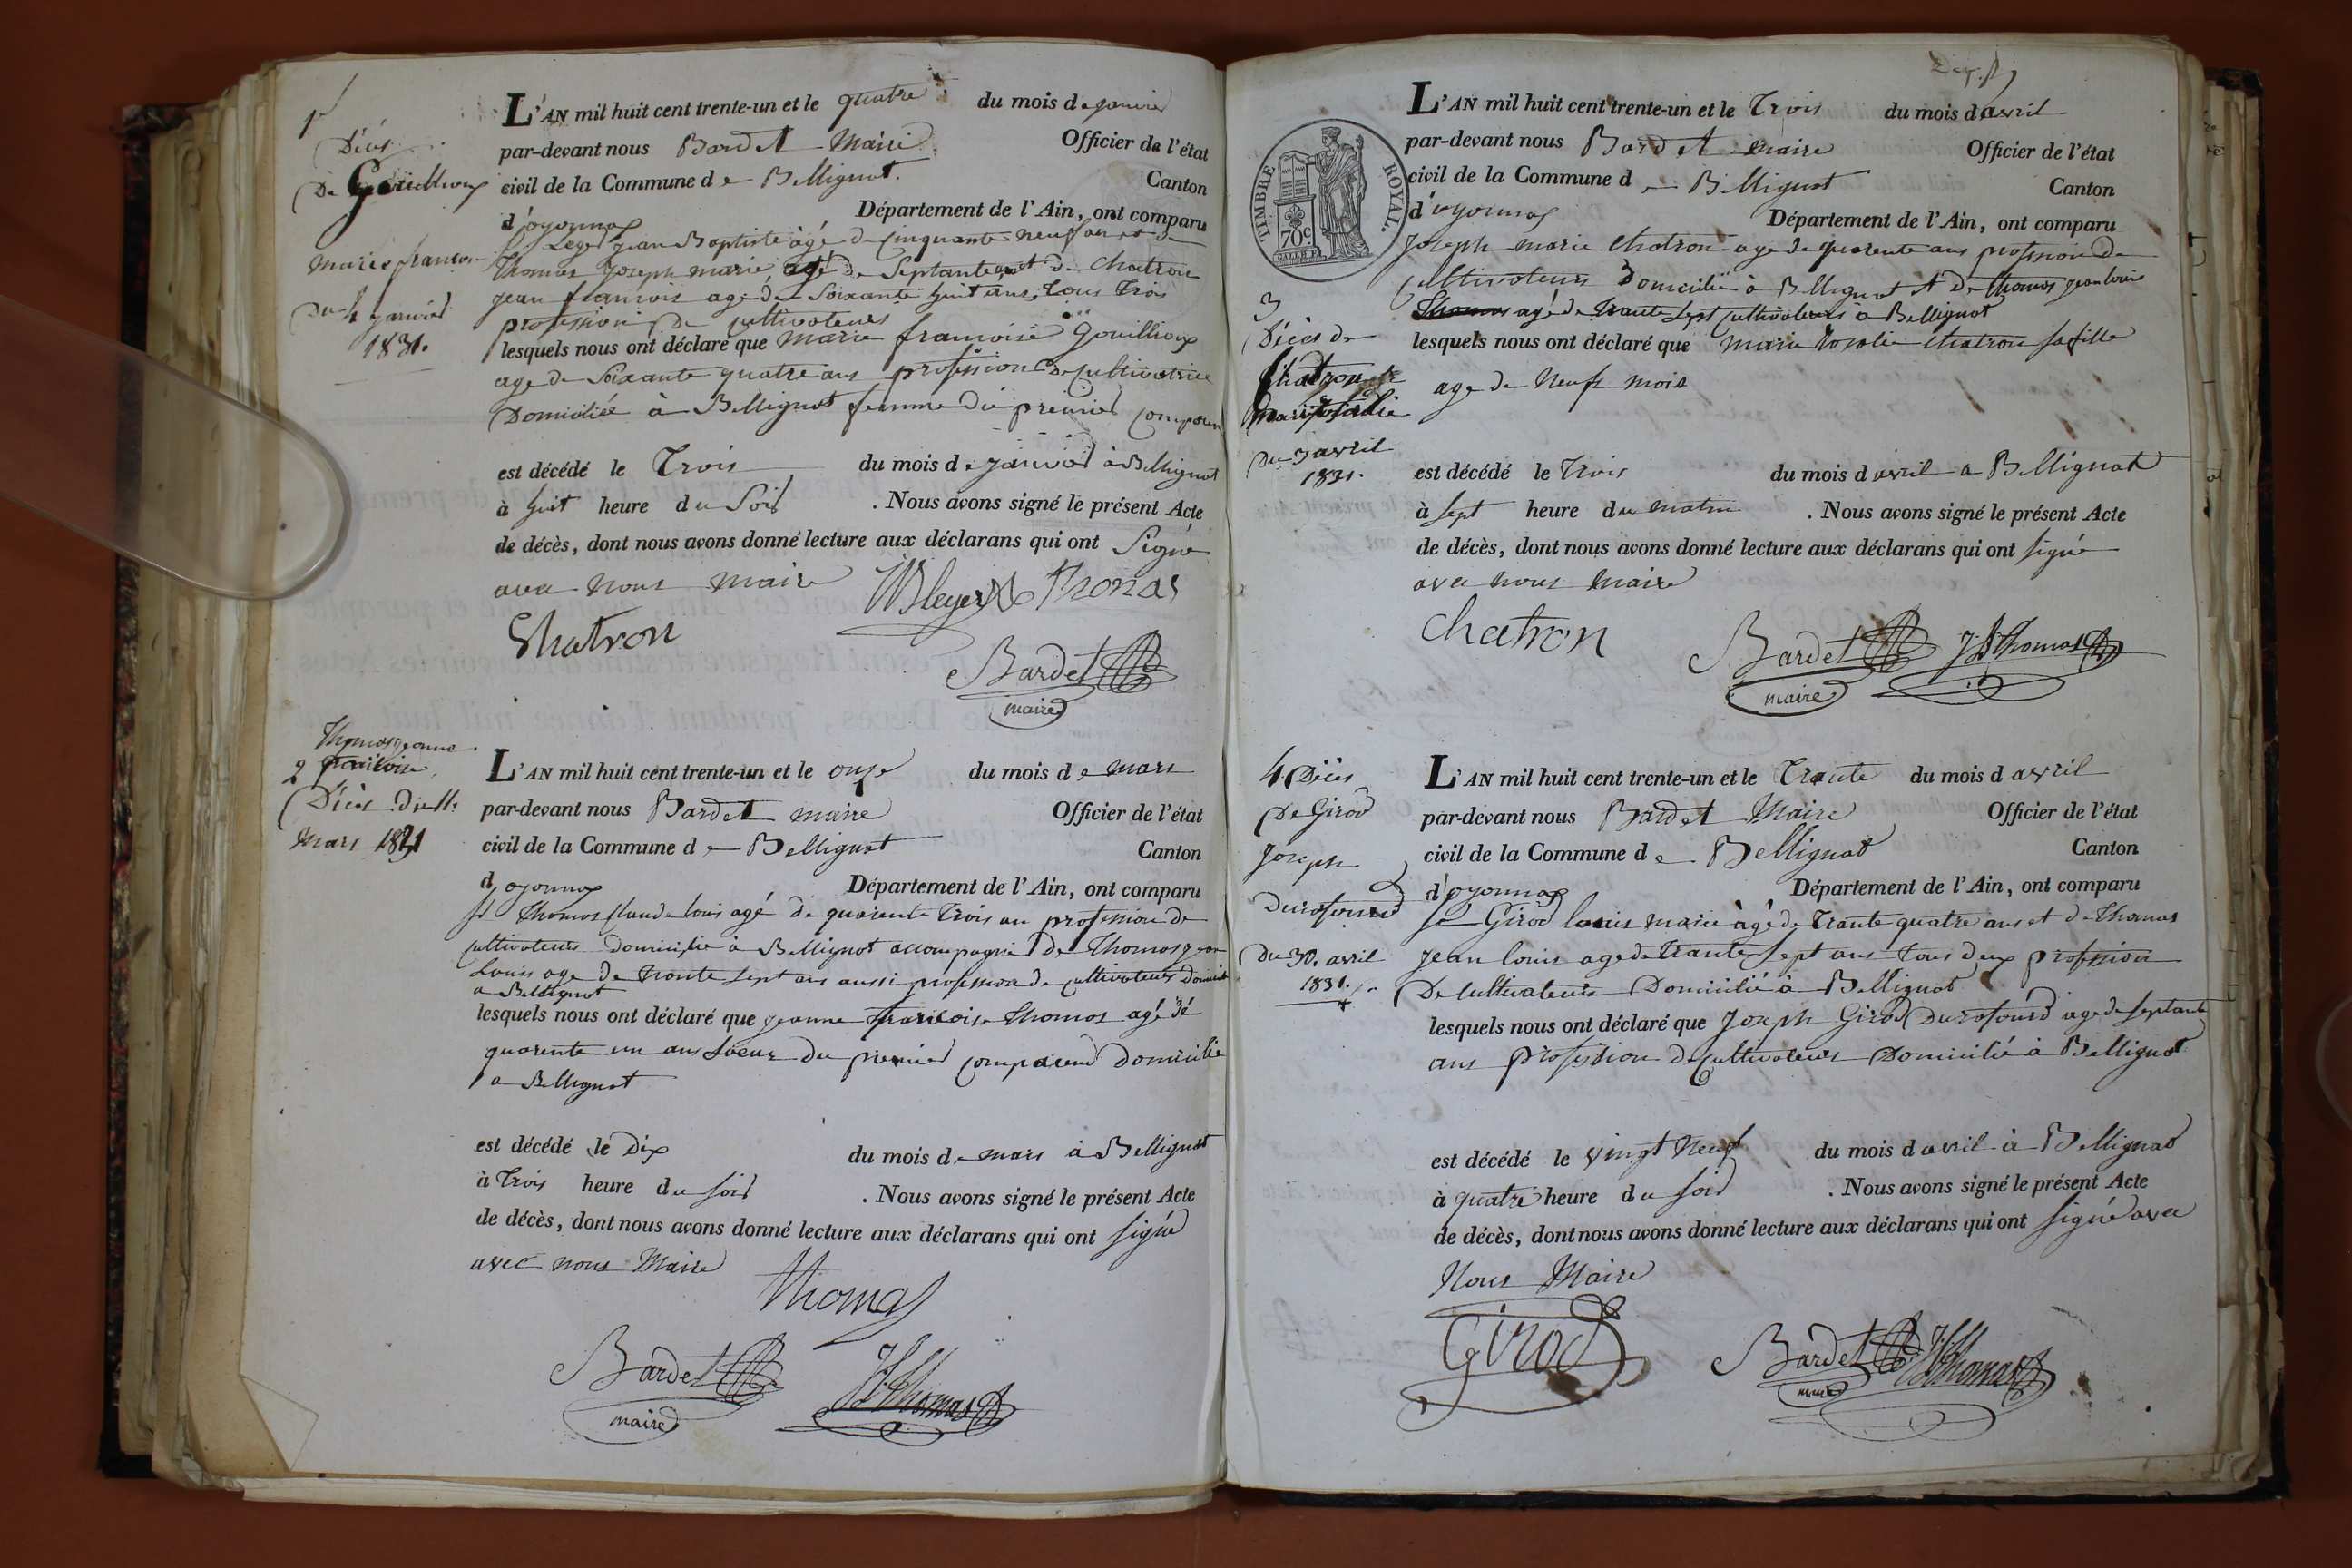 1
Décès
De Gouillioux
Marie françoise
Du 4 janvier
1831.
L'AN mil huit cent trente-un et le quatre du mois de janvier
par-devant nous Bardet Maire Officier de l'état
civil de la Commune de Bellignat. Canton
d'oyonnax Département de l'Ain, ont comparu
Leger jean Baptiste âgé de cinquante neuf ans et de
Thomas Joseph marie, agé de Septante et de Chatron
jean francois age de Soixante huit ans, tous Trois
profession de cultivateurs
lesquels nous ont déclaré que Marie francoise Gouillioux
age de Soixante quatre ans profession de cultivatrice
Domiciliée à Bellignat femme du premier comparu
est décédé le Trois du mois de janvier à Bellignat
à huit heure du Soir . Nous avons signé le présent Acte
de décès, dont nous avons donné lecture aux déclarans qui ont Signé
avec nous maire
JBleger Thomas
Chatron
Bardet
maire
Thomas jeanne
2 francoise
Décès du 11
Mars 1831
L'AN mil huit cent trente-un et le onze du mois de mars
par-devant nous Bardet maire Officier de l'état
civil de la Commune de Bellignat Canton
d'oyonnax Département de l'Ain, ont comparu
Sr Thomas Claude louis agé de quarente Trois an profession de
cultivateurs domicilié à Bellignat accompagné de Thomas jean
Louis age de trante sept ans aussi profession de cultivateurs domicilié
a Bellignat
lesquels nous ont déclaré que jeanne francoise Thomas agé dé
quarente un ans soeur du premier comparend domicilié
a Bellignat
est décédé le Dix du mois de mars à Bellignat
à Trois heure du soir . Nous avons signé le présent Acte
de décès, dont nous avons donné lecture aux déclarans qui ont signé
avec nous Maire
Thomas
Bardet
maire
JLThomas
TIMBRE ROYAL.
70c
L'AN mil huit cent trente-un et le Trois du mois d'avril
par-devant nous Bardet maire Officier de l'état
civil de la Commune de Bellignat Canton
d'oyonnax Département de l'Ain, ont comparu
Joseph marie Chatron age de quarente ans profession de
cultivateurs Domicilié à Bellignat et de thomas jean louis
Thomas agé de trante sept cultivateurs à Bellignat
3
Décès de
Chatron
marie rosalie
Du 3 avril
1831.
lesquels nous ont déclaré que marie rosalie Chatron sa fille
age de Neuf mois
est décédé le Trois du mois d avril a Bellignat
à sept heure du matin . Nous avons signé le présent Acte
de décès, dont nous avons donné lecture aux déclarans qui ont signé
avec nous maire
Chatron
Bardet
maire
JLThomas
4 Décès
De Girod
Joseph
Durafourd
Du 30. avril
1831.
L'AN mil huit cent trente-un et le Trante du mois d avril
par-devant nous Bardet Maire Officier de l'état
civil de la Commune de Bellignat Canton
d'oyonnax Département de l'Ain, ont comparu
Sr Girod louis marie àgé de Trante quatre ans et de Thomas
jean louis age de trante sept ans tous deux profession
De cultivateurs Domicilié à Bellignat
lesquels nous ont déclaré que Joseph Girod Durafourd age de septante
ans profession de cultivateurs Domicilié à Bellignat
est décédé le vingt Neuf du mois d avril à Bellignat
à quatre heure du soir . Nous avons signé le présent Acte
de décès, dont nous avons donné lecture aux déclarans qui ont signé avec
Nous Maire
Girod
Bardet
maire
JLThomas